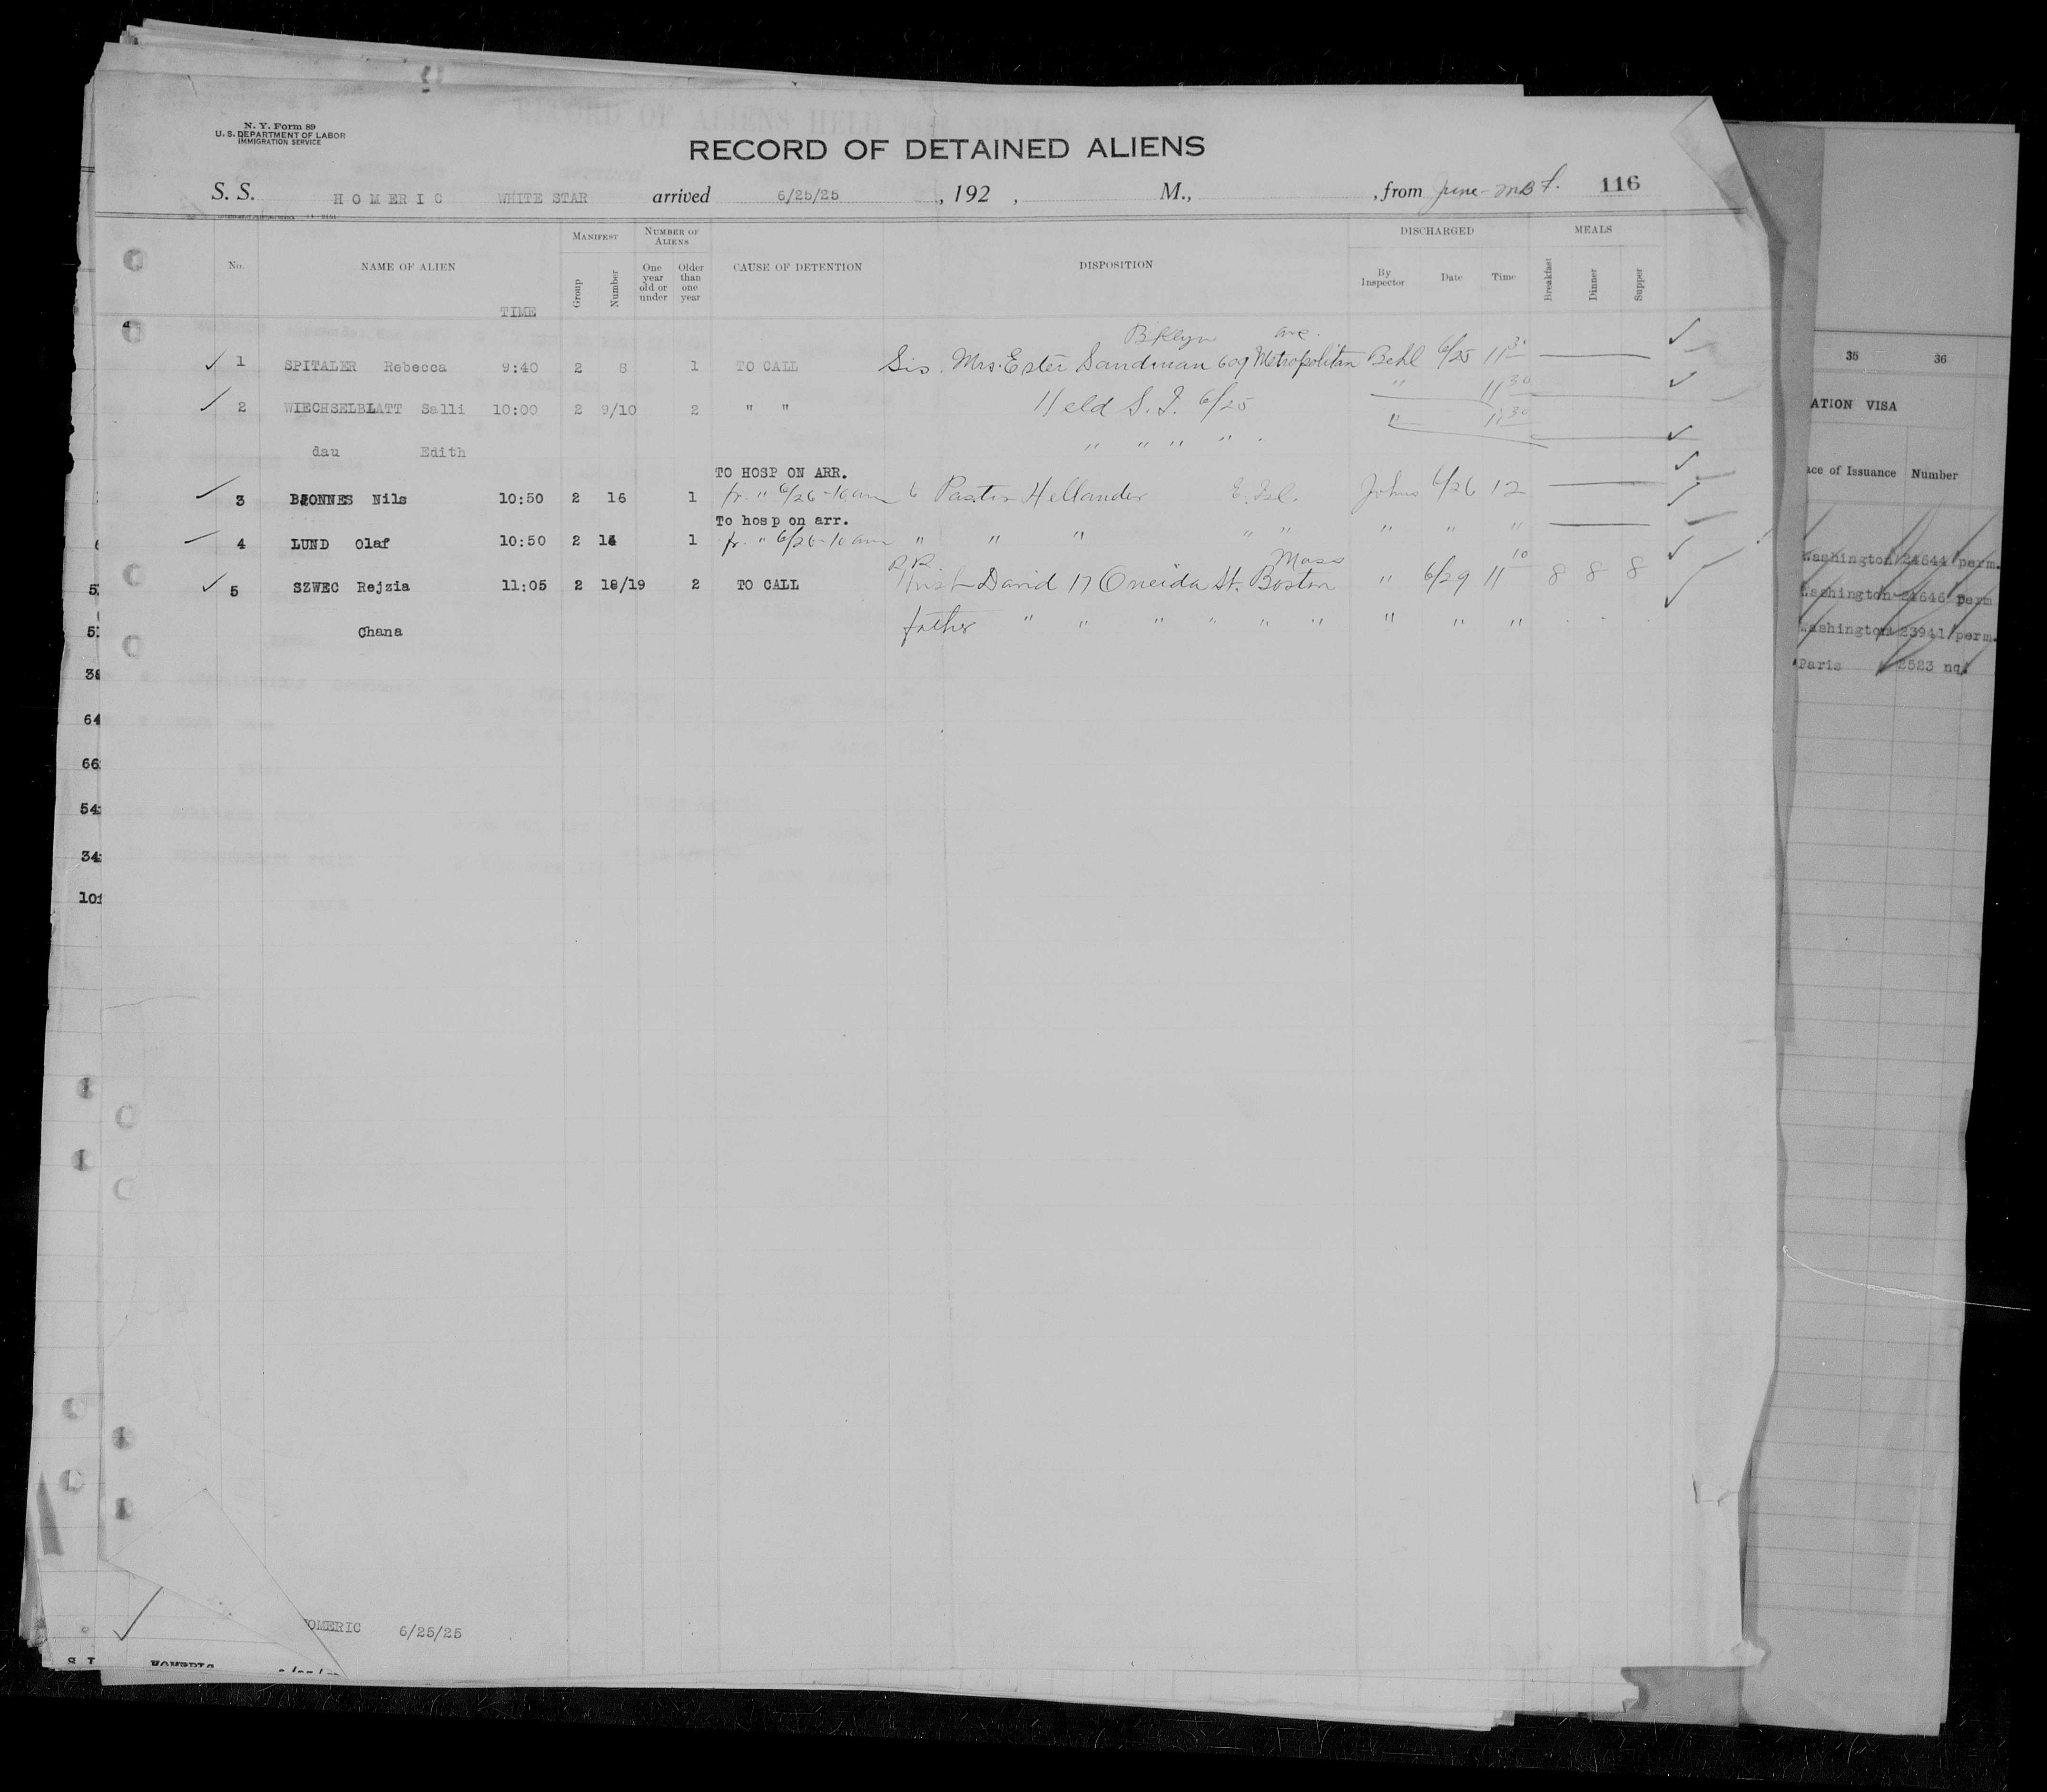 N. Y. Form 89
U. S. DEPARTMENT OF LABOR
IMMIGRATION SERVICE
RECORD OF DETAINED ALIENS
S. S. HOMERIC WHITE STAR arrived 6/25/25, 192 , M., , from June 116
MANIFEST NUMBER OF ALIENS DISCHARGED MEALS
No. NAME OF ALIEN TIME Group Number One year old or under Older than one year CAUSE OF DETENTION DISPOSITION By Inspector Date Time Breakfast Dinner Supper
Bklyn ave.
1 SPITALER Rebecca 9:40 2 8 1 TO CALL Sis. Mrs. Ester Sandman 609 Metropolitan Behl 6/25 11 30
2 WIECHSELBLATT Salli 10:00 2 9/10 2 " " Held S. I. 6/25 " 11 30
dau Edith " " " " " 11 30
TO HOSP ON ARR.
3 BJONNES Nils 10:50 2 16 1 fr. " 6/26-10 am to Pastor Hellander E. Isl. Johns 6/26 12
To hosp on arr.
4 LUND Olaf 10:50 2 1 fr. " 6/26-10 am " " " " " " " "
RR Mass
5 SZWEC Rejzia 11:05 2 18/19 2 TO CALL Husb David 17 Oneida St. Boston " 6/29 11 10 8 8 8
Chana father " " " " " " " " "
35 36
ATION VISA
ace of Issuance Number
Washington 24644 perm.
Washington 24646 perm
Washington 23941 perm.
Paris 2523 nq.
5
5
38
64
66
54
34
10
OMERIC 6/25/25
S I HOMERIC